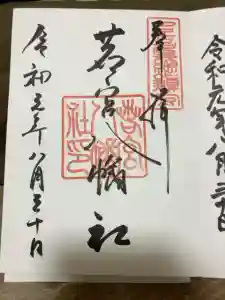 奉拝
若宮八幡社
令和元年八月三十日
令和元年八月三十日